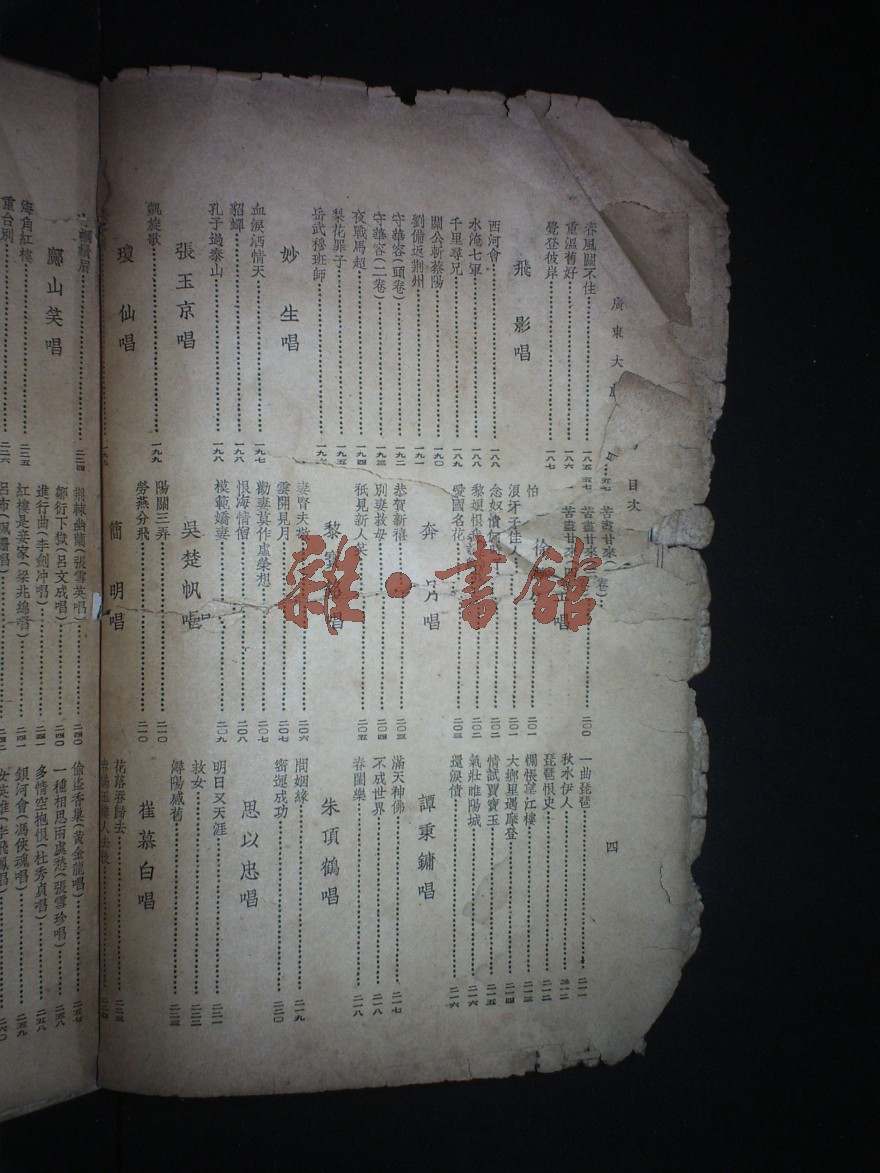 廣東大
目次
四
春風關不住 一八五
重溫舊好 一八六
覺登彼岸 一八七
飛影唱
西河會 一八八
水淹七軍 一八八
千里尋兄 一八九
關公斬蔡陽 一九〇
劉備返荆州 一九一
守華容（頭卷） 一九二
守華容（二卷） 一九三
夜戰馬超 一九四
梨花罪子 一九五
岳武穆班師 一九六
妙生唱
血淚洒情天 一九七
貂蟬 一九八
孔子過泰山 一九八
張玉京唱
凱旋歌 一九九
瓊仙唱
苦盡甘來
苦盡甘來
二〇〇
怕 二〇一
須牙子佳人 二〇一
念奴憤 二〇二
黎媳恨 二〇二
愛國名花 二〇三
唱
恭賀新禧 二〇三
別妻救母 二〇四
祇見新人笑 二〇五
黎 唱
妻賢夫 二〇六
雲開見月 二〇七
勸妻莫作虛榮想 二〇七
恨海情僧 二〇八
模範嬌妻 二〇九
吳楚帆唱
陽關三弄 二一〇
勞燕分飛 二一〇
簡明唱
一曲琵琶 二一一
秋水伊人 二一二
琵琶恨史 二一二
惆悵望江樓 二一三
大鄉里遇摩登 二一四
情試賈寶玉 二一五
氣壯睢陽城 二一六
還淚債 二一六
譚秉鏞唱
滿天神佛 二一七
不成世界 二一八
春閨樂 二一八
朱頂鶴唱
問姻緣 二一九
密運成功 二二〇
思以忠唱
明日又天涯 二二一
救女 二二二
潯陽感舊 二二三
崔慕白唱
花落春歸去 二二三
二二四
鄺山笑唱
海角紅樓 二三五
重台別 二三六
荆棘幽蘭（張雪英唱） 二四〇
鄒衍下獄（呂文成唱） 二四〇
進行曲（李劍冲唱） 二四一
紅樓是妾家（梁兆綿唱） 二四一
偷盜香巢（黃金龍唱） 二五七
一種相思兩處愁（張雪珍唱） 二五八
多情空抱恨（杜秀貞唱） 二五八
銀河會（馮俠魂唱） 二五九
二六〇
雜·書館